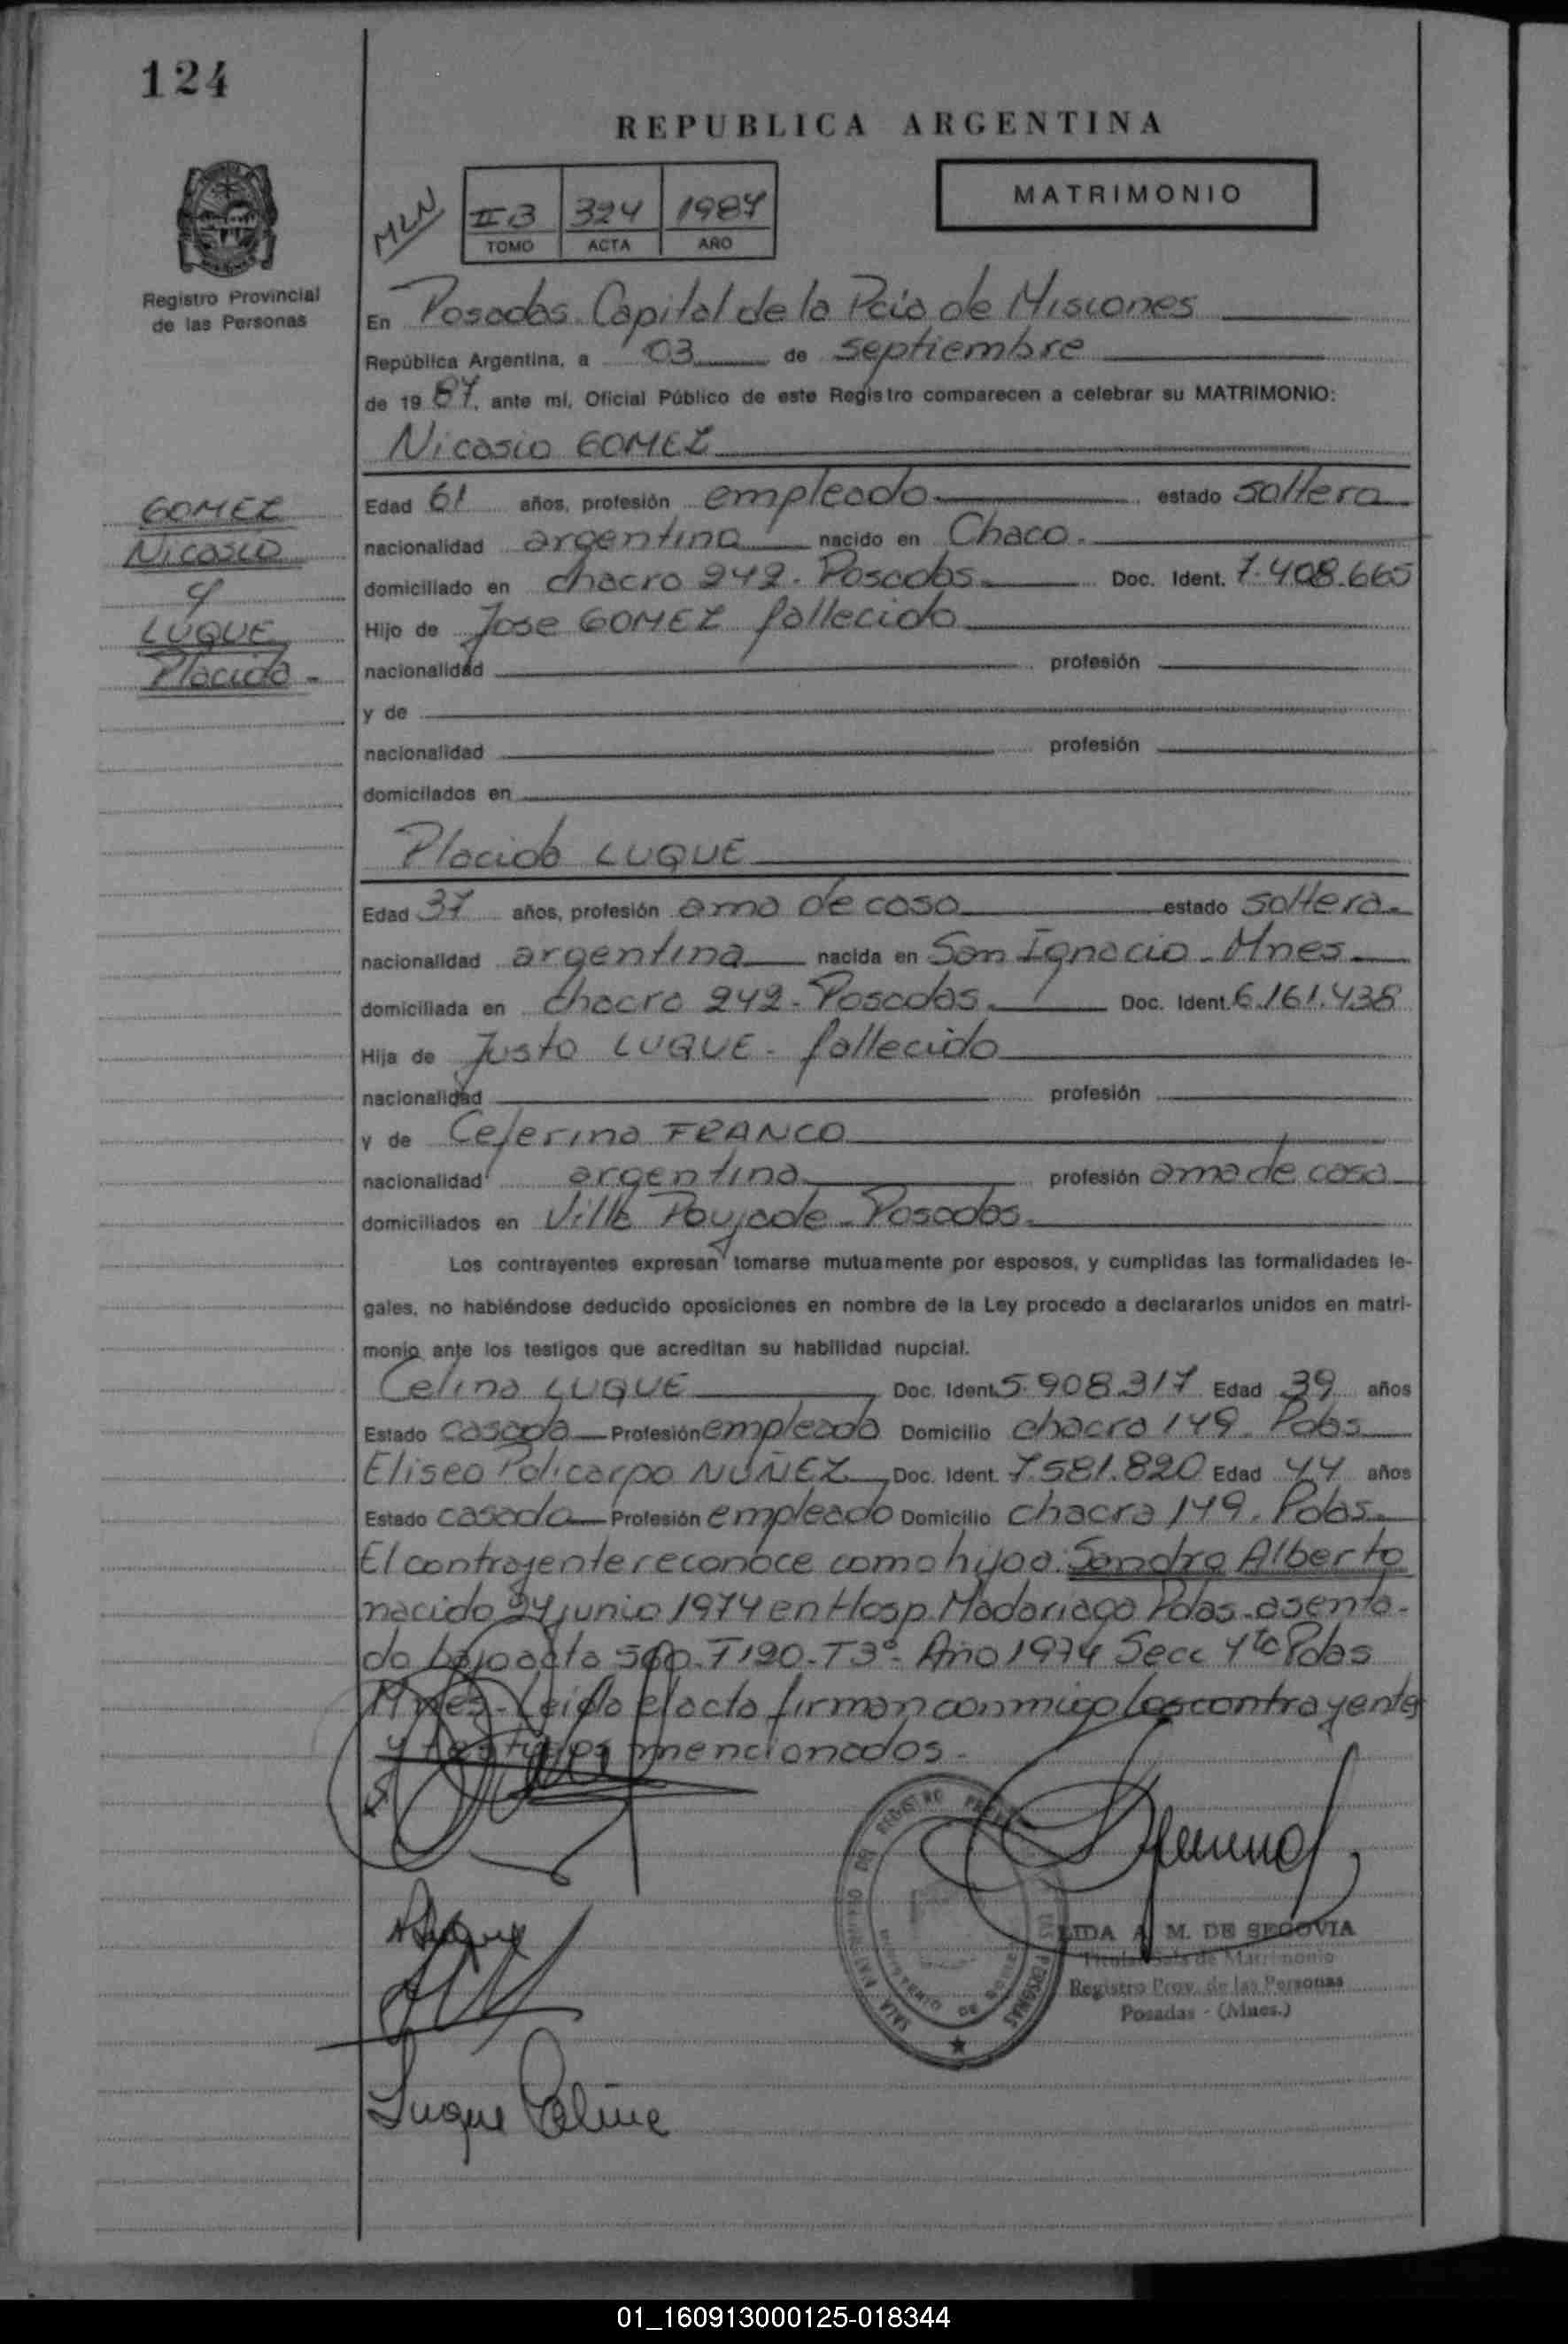 124
REPUBLICA ARGENTINA
MATRIMONIO
MLN
II B 324 1987
TOMO ACTA AÑO
Registro Provincial
de las Personas
En Posadas. Capital de la Pcia de Misiones
República Argentina, a 03 de septiembre
de 19 87, ante mí, Oficial Público de este Registro comparecen a celebrar su MATRIMONIO:
Nicasio GOMEZ
GOMEZ
Nicasio
y
LUQUE
Placida -
Edad 61 años, profesión empleado estado soltero
nacionalidad argentina nacido en Chaco.
domiciliado en chacra 242. Posadas. Doc. Ident. 7.408.665
Hijo de Jose GOMEZ fallecido
nacionalidad profesión
y de
nacionalidad profesión
domicilados en
Placida LUQUE
Edad 37 años, profesión ama de casa estado soltera.
nacionalidad argentina nacida en San Ignacio - Mnes.
domiciliada en chacra 242 - Posadas. Doc. Ident. 6.161.438
Hija de Justo LUQUE - fallecido
nacionalidad profesión
y de Ceferina FRANCO
nacionalidad argentina profesión ama de casa
domiciliados en Villa Poujade - Posadas.
Los contrayentes expresan tomarse mutuamente por esposos, y cumplidas las formalidades le-
gales, no habiéndose deducido oposiciones en nombre de la Ley procedo a declararlos unidos en matri-
monio ante los testigos que acreditan su habilidad nupcial.
Celina LUQUE Doc. Ident. 5.908.317 Edad 39 años
Estado casada Profesión empleada Domicilio chacra 149. Pdas
Eliseo Policarpo NUÑEZ Doc. Ident. 7.581.820 Edad 44 años
Estado casado Profesión empleado Domicilio chacra 149. Pdas.
El contrayente reconoce como hijo a: Sandro Alberto
nacido 24 junio 1974 en Hosp. Madariaga Pdas - asenta-
do bajo acta T3º - Año 1974 Secc 4ta Pdas
Mnes - Leida el acta firman conmigo los contrayentes
y testigos mencionados -
LIDA A. M. DE SEGOVIA
Titular Sala de Matrimonio
Registro Prov. de las Personas
Posadas - (Mnes.)
Luque Celina
01_160913000125-018344